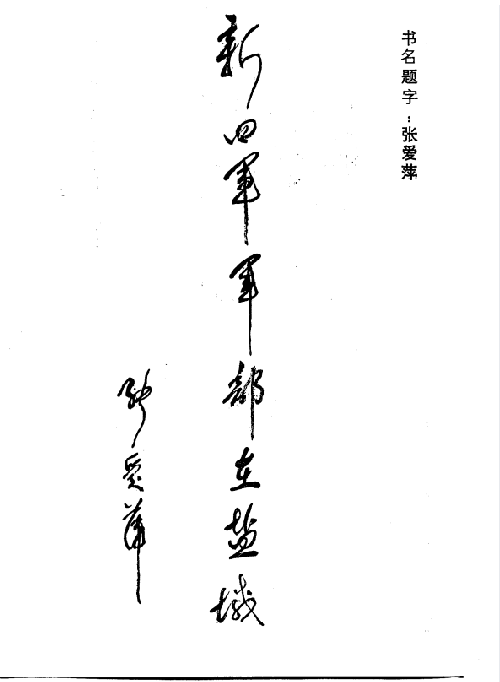 书名题字：张爱萍
新四军军部在盐城
张爱萍